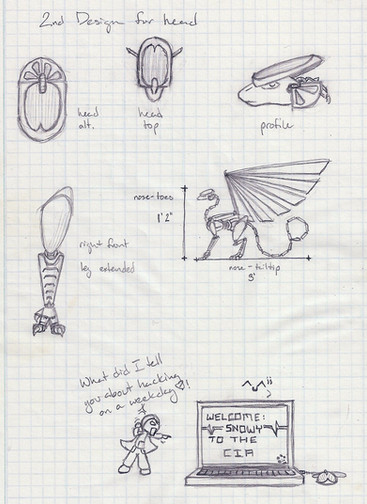 2nd Design for head
head
alt.
head
top
profile
nose-toes
1'2"
right front
leg extended
nose-tailtip
3'
What did I tell
you about hacking
on a weekday?!
WELCOME:
SNOWY
TO THE
CIA